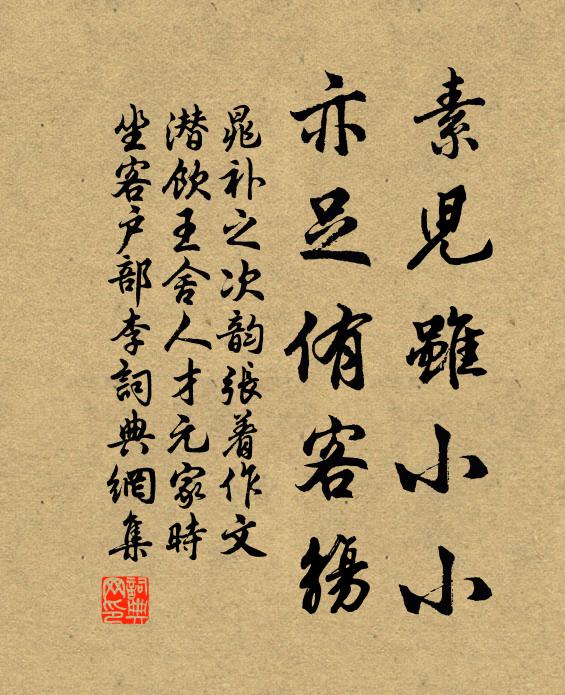 素児雖小小
亦足侑客觴
晁补之次韵張着作文
潜飲王舍人才元家時
坐客戶部李詞典網集
詞典网印